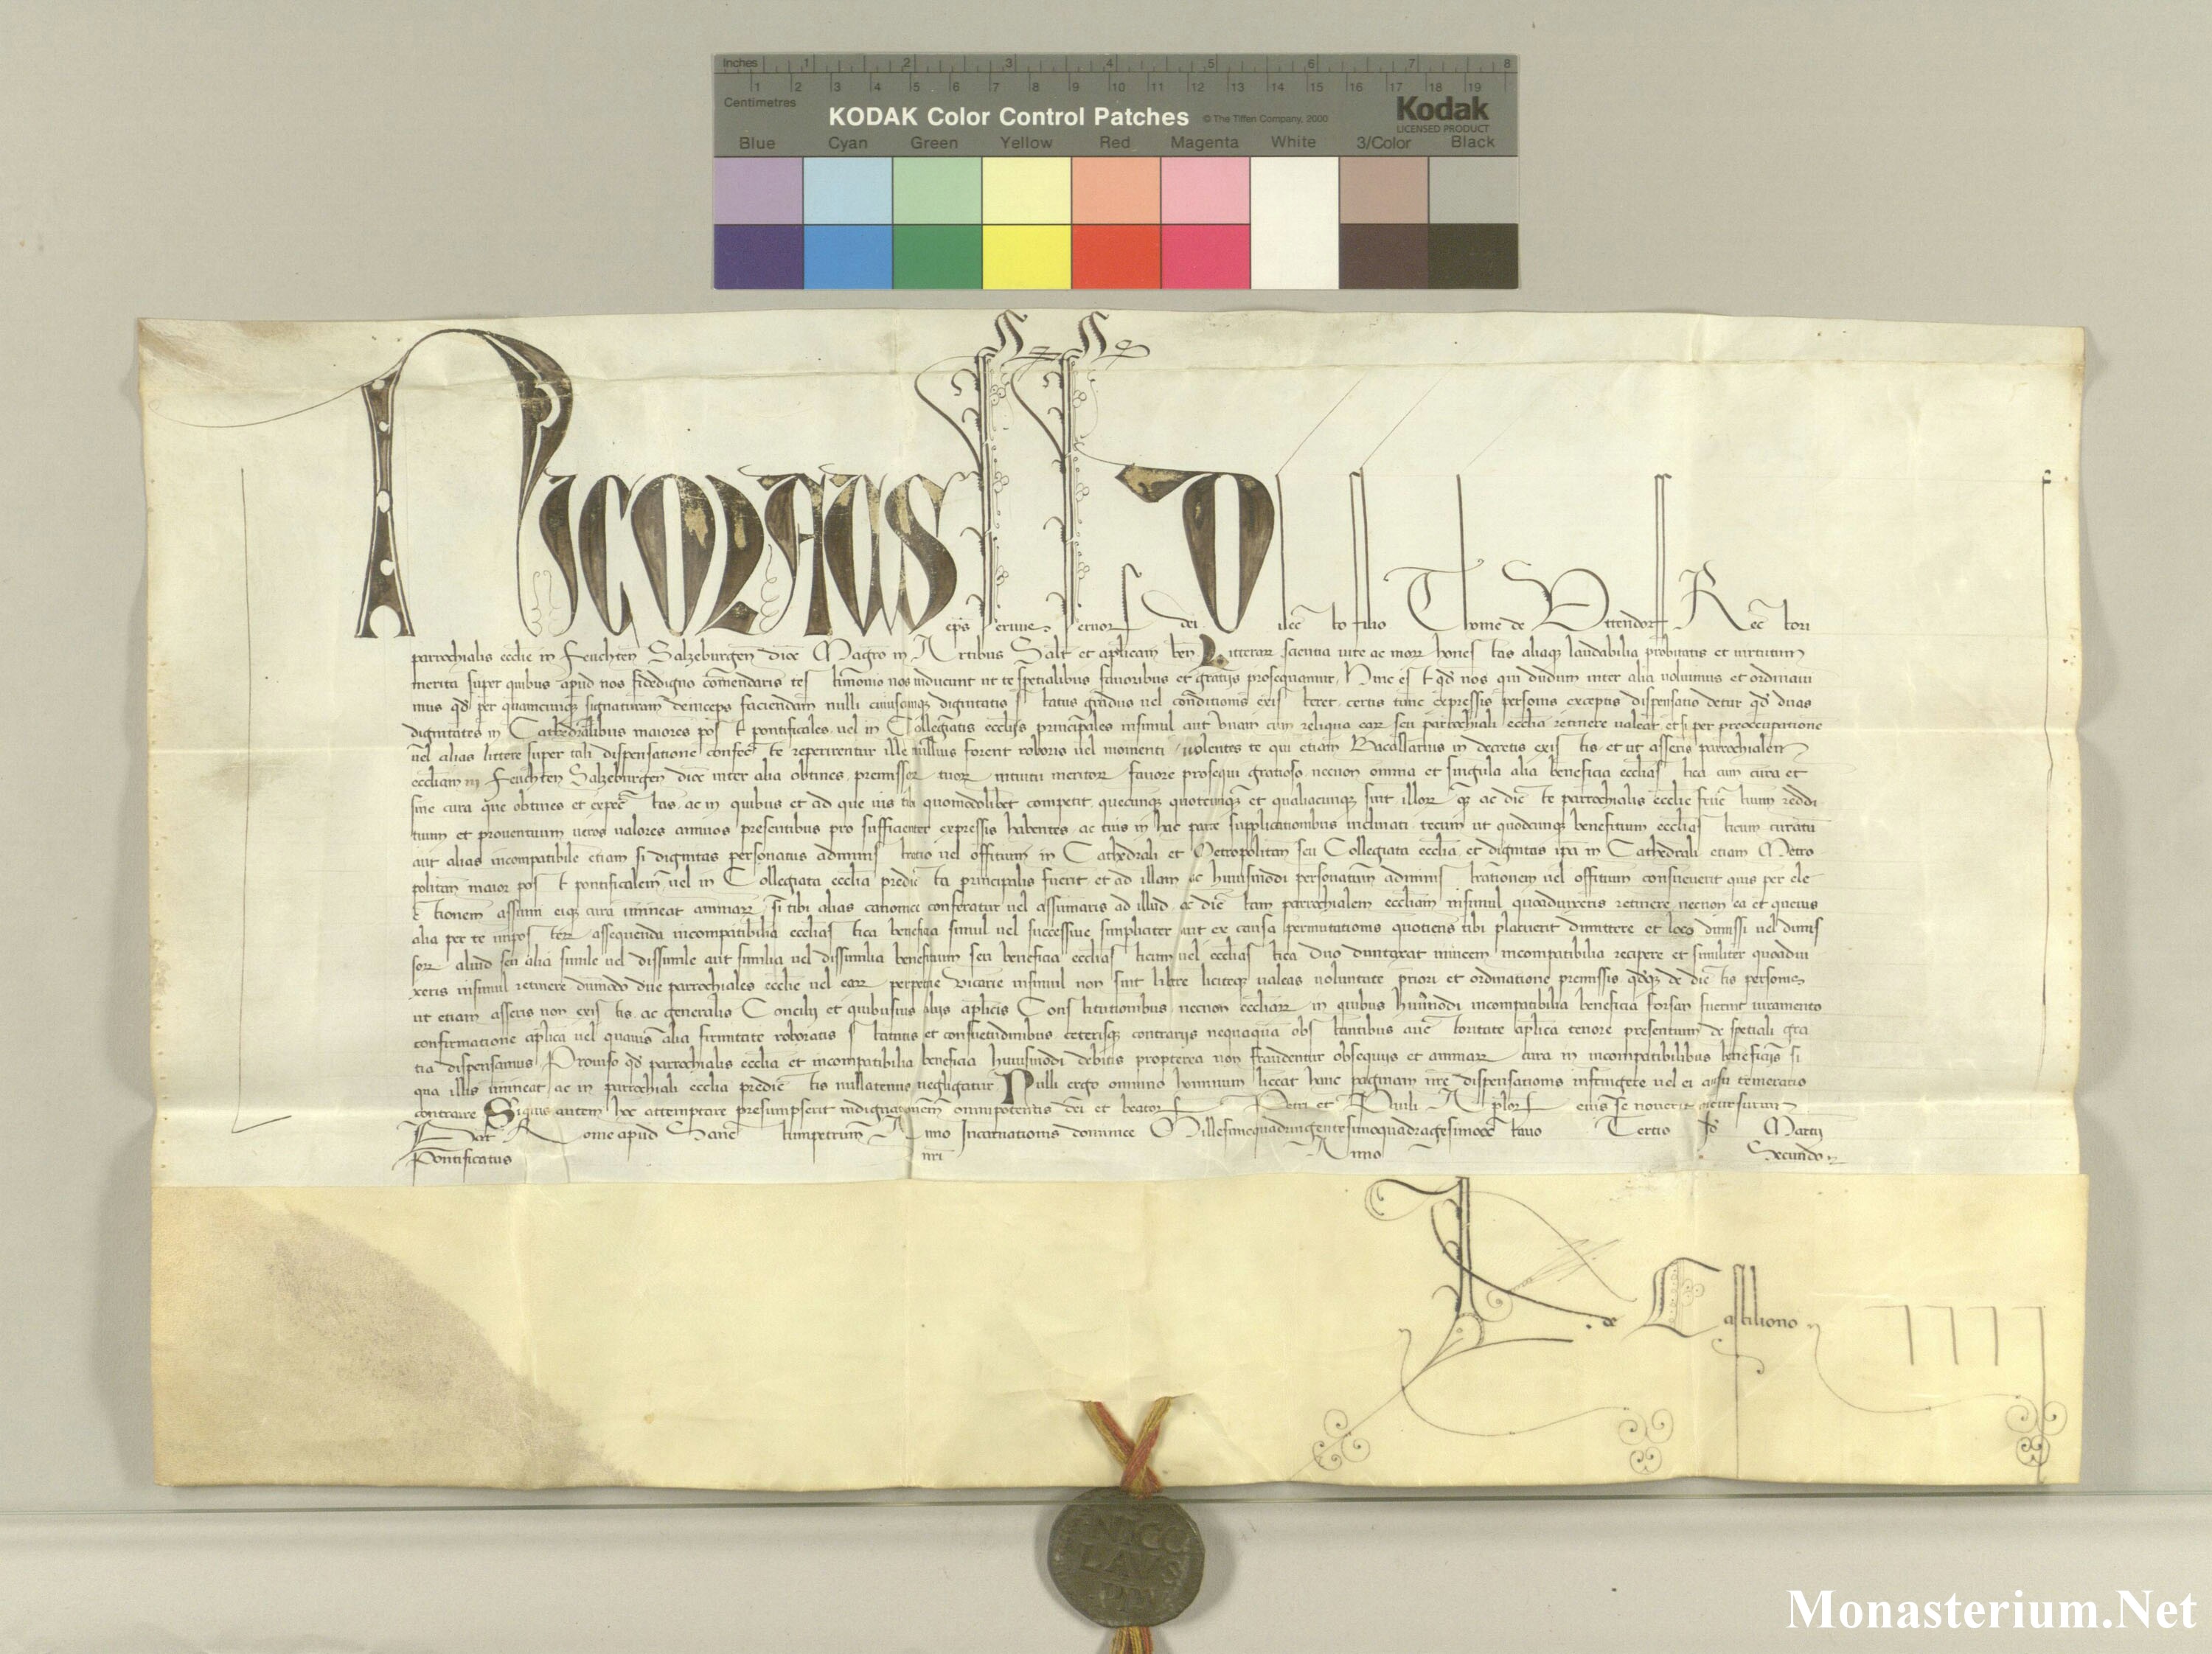 Inches 1 2 3 4 5 6 7 8
1 2 3 4 5 6 7 8 9 10 11 12 13 14 15 16 17 18 19
Centimetres
KODAK Color Control Patches © The Tiffen Company, 2000 Kodak
LICENSED PRODUCT
Blue Cyan Green Yellow Red Magenta White 3/Color Black
NICOLAUS ep̄s seruus seruor dei Dilecto filio Thome de Vttendorff Rectori
parrochialis ecclie in Feuchten Salzeburgeñ dioc̄ Magro in Artibus Salt̄ et aplicam ben̄ Litterar scientia uite ac mor honestas aliaqꝫ laudabilia probitatis et uirtutum
merita super quibus apud nos fidedigno com̄endaris testimonio nos inducunt ut te spetialibus fauoribus et gratijs prosequamur Hinc est qd nos qui dudum inter alia uoluimus et ordinaui
mus qd per quamcunqꝫ signaturam deinceps faciendam nulli cuiuscunqꝫ dignitatis status gradus uel conditionis existeret certis tunc expressis personis exceptis dispensatio detur qd duas
dignitates in Cathedralibus maiores post pontificales uel in Collegiatis ecclijs principales insimul aut unam cum reliqua ear seu parrochiali ecclia retinere ualeat et si per preoccupatione
uel alias littere super tali dispensatione confecte reperirentur ille nullius forent roboris uel momenti uolentes te qui etiam Bacallarius in decretis existis et ut asseris parrochialem
eccliam in Feuchten Salzeburgeñ dioc̄ inter alia obtines premissor tuor intuitu meritor fauore prosequi gratioso necnon omnia et singula alia beneficia ecclīastica cum cura et
sine cura que obtines et expectas ac in quibus et ad que ius tibi quomodolibet competit quecunqꝫ quotcunqꝫ et qualiacunqꝫ sint illor qꝫ ac dicte parrochialis ecclie fructuum reddi
tuum et prouentuum ueros ualores annuos presentibus pro sufficienter expressis habentes ac tuis in hac parte supplicationibus inclinati tecum ut quodcunqꝫ benefitium ecclīasticum curatū
aut alias incompatibile etiam si dignitas personatus administratio uel offitium in Cathedrali et Metropolitan seu Collegiata ecclia et dignitas ipa in Cathedrali etiam Metro
politan maior post pontificalem uel in Collegiata ecclia predicta principalis fuerit et ad illam ac huiusmodi personatum administrationem uel offitium consueuerit quis per ele
ctionem assumi eiqꝫ cura immineat animar si tibi alias canonice conferatur uel assumaris ad illud ac dictam parrochialem eccliam insimul quoaduixeris retinere necnon ea et queuis
alia per te imposter assequenda incompatibilia ecclīastica beneficia simul uel successiue simpliciter aut ex causa permutationis quotiens tibi placuerit dimittere et loco dimissi uel dimis
sor aliud seu alia simile uel dissimile aut similia uel dissimilia benefitium seu beneficia ecclīasticum uel ecclīastica duo duntaxat inuicem incompatibilia recipere et similiter quoadui
xeris insimul retinere dummodo due parrochiales ecclie uel ear perpetue Vicarie insimul non sint libere liciteqꝫ ualeas uoluntate priori et ordinatione premissis qdqꝫ de dictis personis
ut etiam asseris non existis ac generalis Concilij et quibusuis alijs aplicis Constitutionibus necnon ecclīar in quibus huiusmodi incompatibilia beneficia forsan fuerint iuramento
confirmatione aplica uel quauis alia firmitate roboratis statutis et consuetudinibus ceterisqꝫ contrarijs nequaquā obstantibus auctoritate aplica tenore presentium de spetiali gra
tia dispensamus Prouiso qd parrochialis ecclia et incompatibilia beneficia huiusmodi debitis propterea non fraudentur obsequijs et animar cura in incompatibilibus beneficijs si
qua illis immineat ac in parrochiali ecclia predictis nullatenus negligatur Nulli ergo omnino hominum liceat hanc paginam nre dispensationis infringere uel ei ausu temerario
contraire Siquis autem hoc attemptare presumpserit indignationem omnipotentis dei et beator Petri et Pauli Aplor eius se nouerit incursurum
Dat Rome apud Sanctumpetrum Anno Incarnationis dominice Millesimoquadringentesimoquadragesimooctauo Tertio Id Martij
Pontificatus nri Anno Secundo
de Castiliono
NICO
LAVS
PP V
Monasterium.Net